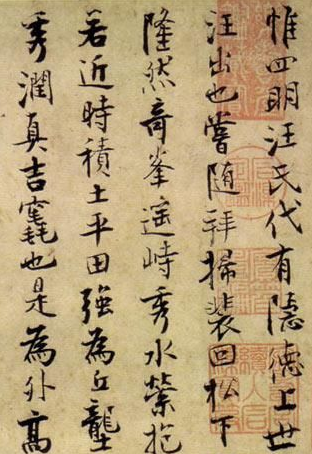 惟四明汪氏代有隱德上世
汪出也嘗随拜掃裴回松下
隆然奇峯遥峙秀水縈抱
若近時積土平田強為丘壟
秀潤真吉窀也是為外高